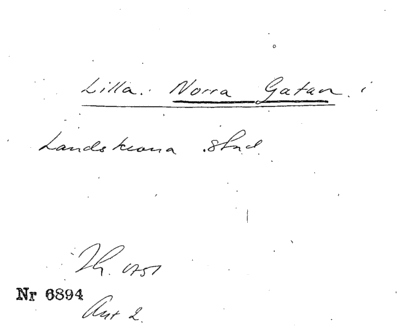 Lilla Norra Gatan i
Landskrona stad.
Nr 6894
Ant 2.